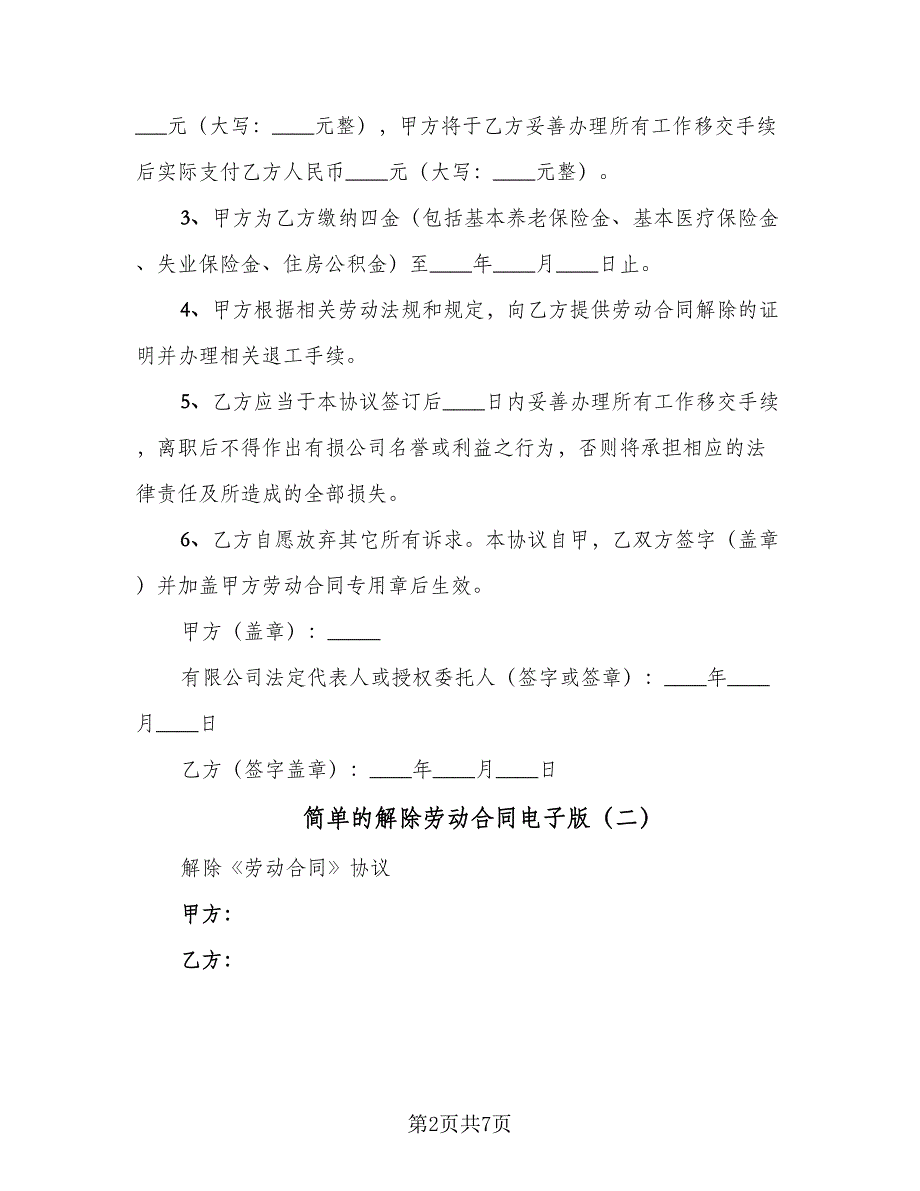 ___元（大写：____元整），甲方将于乙方妥善办理所有工作移交手续
后实际支付乙方人民币____元（大写：____元整）。
3、甲方为乙方缴纳四金（包括基本养老保险金、基本医疗保险金
、失业保险金、住房公积金）至____年____月____日止。
4、甲方根据相关劳动法规和规定，向乙方提供劳动合同解除的证
明并办理相关退工手续。
5、乙方应当于本协议签订后____日内妥善办理所有工作移交手续
，离职后不得作出有损公司名誉或利益之行为，否则将承担相应的法
律责任及所造成的全部损失。
6、乙方自愿放弃其它所有诉求。本协议自甲，乙双方签字（盖章
）并加盖甲方劳动合同专用章后生效。
甲方（盖章）：_____
有限公司法定代表人或授权委托人（签字或签章）：____年____
月____日
乙方（签字盖章）：____年____月____日
简单的解除劳动合同电子版（二）
解除《劳动合同》协议
甲方：
乙方：
第2页共7页